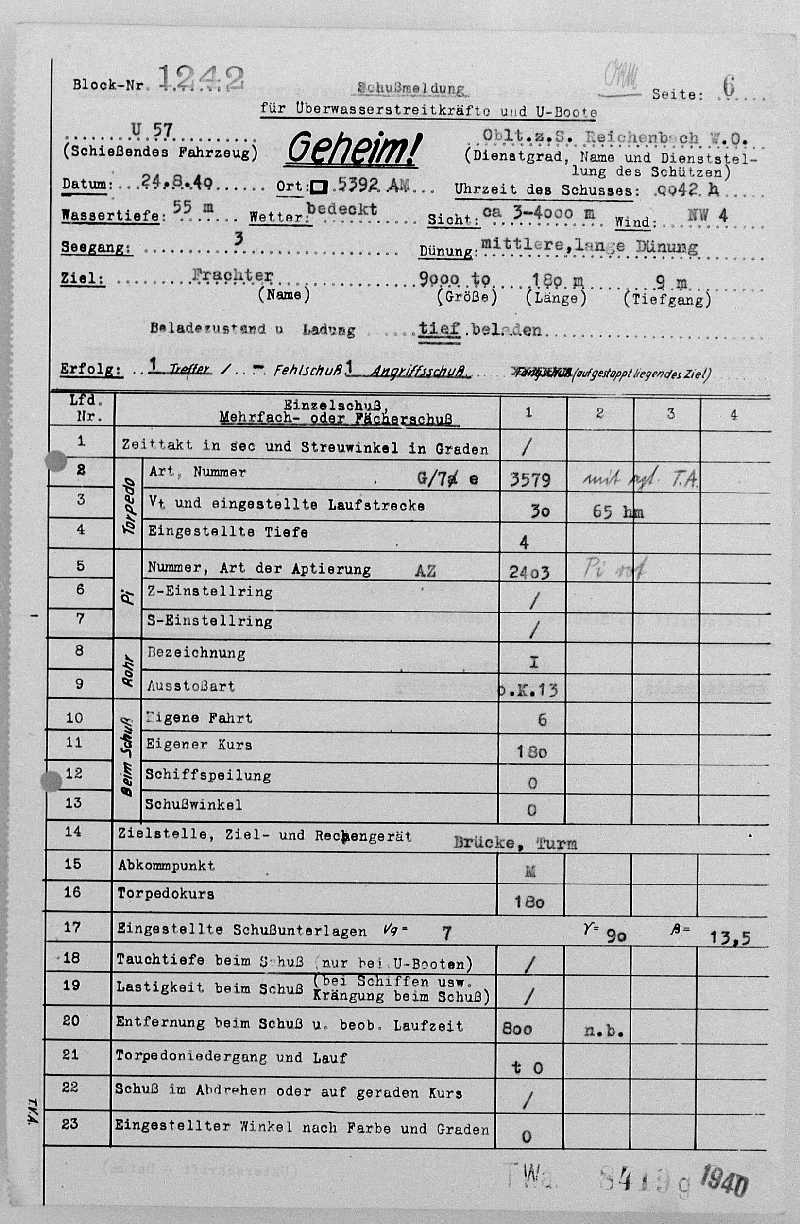 Block-Nr. 1242 Schußmeldung Seite: 6
für Überwasserstreitkräfte und U-Boote
U 57 Geheim! Oblt.z.S. Reichenbach W.O.
(Schießendes Fahrzeug) (Dienstgrad, Name und Dienststel-
lung des Schützen)
Datum: 24.8.40 Ort: 5392 AM Uhrzeit des Schusses: 0042 h
Wassertiefe: 55 m Wetter: bedeckt Sicht: ca 3-4000 m Wind: NW 4
Seegang: 3 Dünung: mittlere, lange Dünung
Ziel: Frachter 9000 to 180 m 9 m
(Name) (Größe) (Länge) (Tiefgang)
Beladezustand u Ladung tief beladen
Erfolg: 1 Treffer / - Fehlschuß 1 Angriffsschuß (auf gestoppt liegendes Ziel)
Lfd. Nr. Einzelschuß, Mehrfach- oder Fächerschuß 1 2 3 4
1 Zeittakt in sec und Streuwinkel in Graden /
Torpedo
2 Art, Nummer G/7a e 3579 mit T.A.
3 Vt und eingestellte Laufstrecke 30 65 hm
4 Eingestellte Tiefe 4
Pi
5 Nummer, Art der Aptierung AZ 2403 Pi rot
6 Z-Einstellring /
7 S-Einstellring /
Rohr
8 Bezeichnung I
9 Ausstoßart o.K.13
Beim Schuß
10 Eigene Fahrt 6
11 Eigener Kurs 180
12 Schiffspeilung 0
13 Schußwinkel 0
14 Zielstelle, Ziel- und Rechengerät Brücke, Turm
15 Abkommpunkt M
16 Torpedokurs 180
17 Eingestellte Schußunterlagen Vg= 7 γ= 90 β= 13,5
18 Tauchtiefe beim Schuß (nur bei U-Booten) /
19 Lastigkeit beim Schuß (bei Schiffen usw. Krängung beim Schuß) /
20 Entfernung beim Schuß u. beob. Laufzeit 800 n.b.
21 Torpedoniedergang und Lauf t 0
22 Schuß im Abdrehen oder auf geraden Kurs /
23 Eingestellter Winkel nach Farbe und Graden 0
T.V.A.
TWa. 8419 g 1940